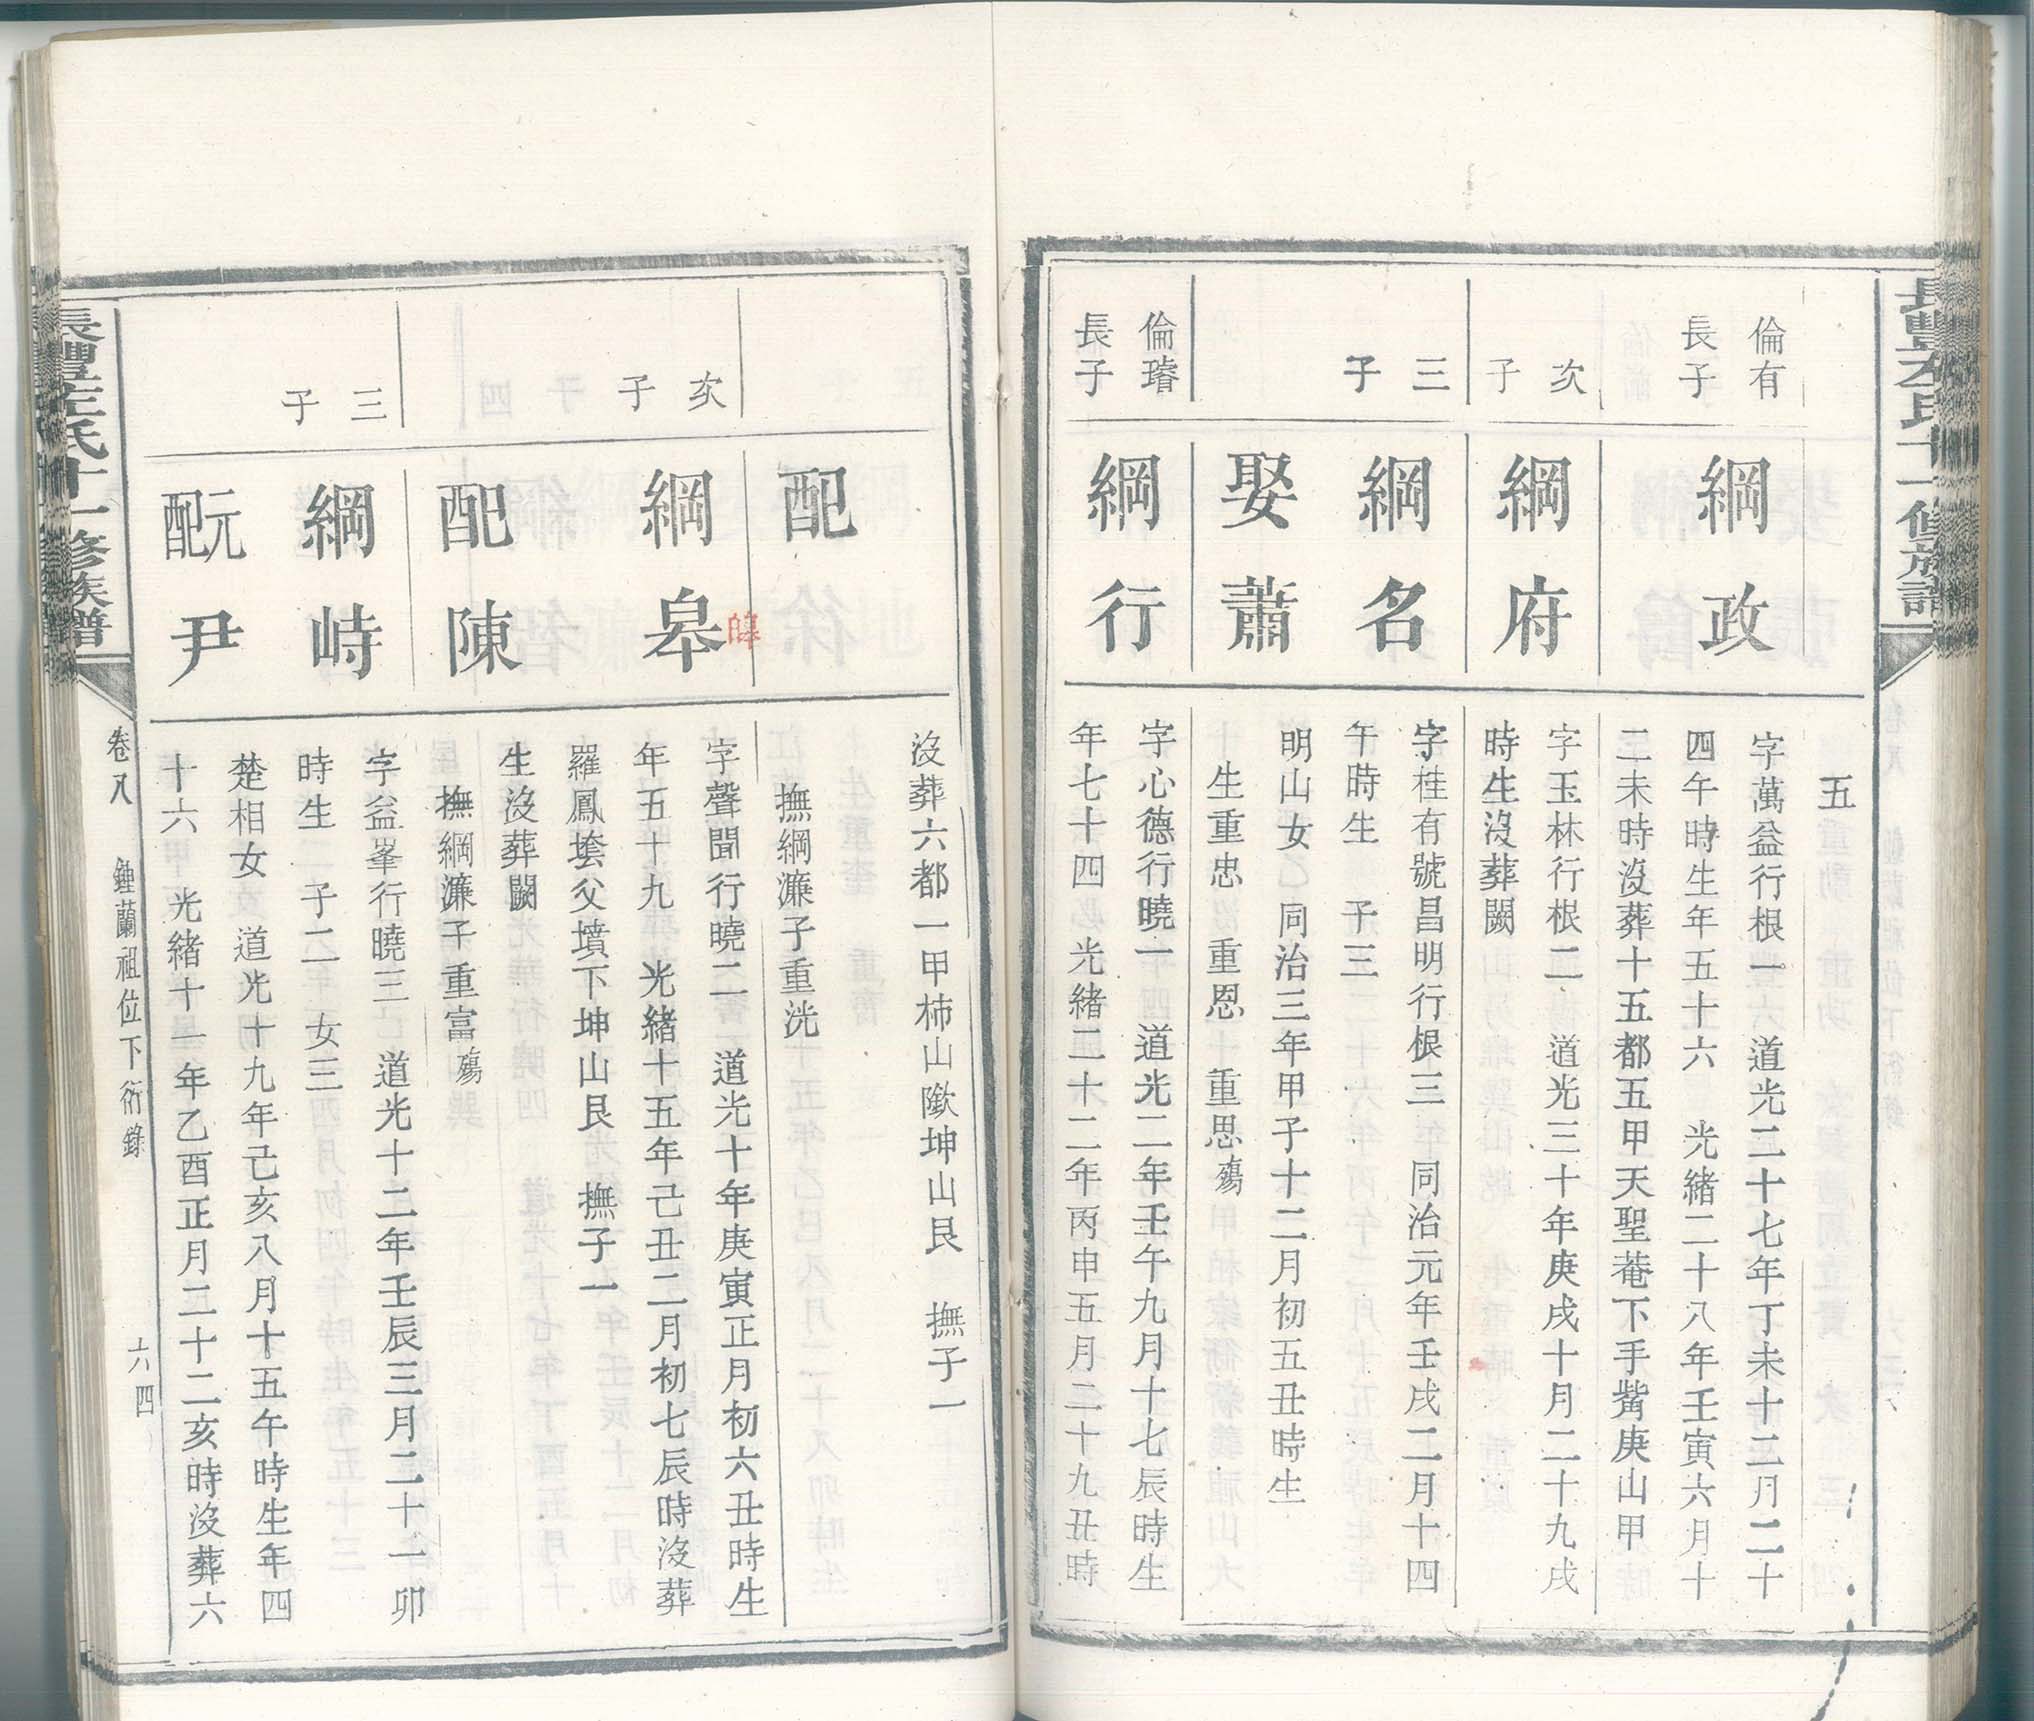 五
倫有
長子
綱政
字萬益行根一　道光二十七年丁未十二月二十
四午時生年五十六　光緒二十八年壬寅六月十
二未時沒葬十五都五甲天聖菴下手觜庚山甲
次子
綱府
字玉林行根二　道光三十年庚戌十月二十九戌
時生沒葬闕
三子
綱名
字桂有號昌明行根三　同治元年壬戌二月十四
午時生　子三
娶蕭
明山女　同治三年甲子十二月初五丑時生
生重忠　重恩　重思殤
倫璿
長子
綱行
字心德行曉一　道光二年壬午九月十七辰時生
年七十四　光緒二十二年丙申五月二十九丑時
沒葬六都一甲柿山隞坤山艮　撫子一
配
撫綱濂子重洸
次子
綱皋
皞
字聲聞行曉二　道光十年庚寅正月初六丑時生
年五十九　光緒十五年己丑二月初七辰時沒葬
羅鳳塋父墳下坤山艮　撫子一
配陳
生沒葬闕
撫綱濂子重富殤
三子
綱峙
字益峯行曉三　道光十二年壬辰三月二十一卯
時生　子二　女三
元配尹
楚相女　道光十九年己亥八月十五午時生年四
十六　光緒十一年乙酉正月二十二亥時沒葬六
長豐左氏十一修族譜
卷又　鍾蘭祖位下衍錄　六四
長豐左氏十一修族譜